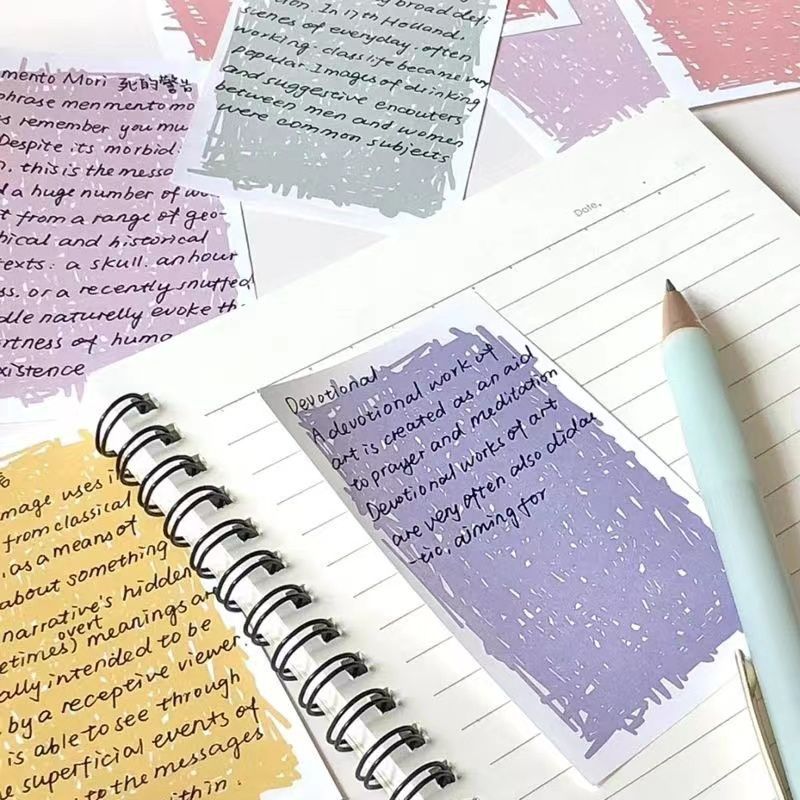 mento Mori 死的警告
phrase menmento mo
s remember you mu
Despite its morbid
n, this is the messa
d a huge number of wo
t from a range of geo-
hical and historical
texts: a skull. an hour
ss, or a recently snuffed
dle naturelly evoke th
rtness of huma
xistence
broad defi
ion. In 17th Holland.
scenes of everyday, often
working-class life became very
popular. Images of drinking
and suggestive encouters
between men and women
were common subjects
Date.
Devotional
A devotional work of
art is created as an aid
to prayer and meditation
Devotional works of art
are very often also didac
-tic, aiming for
mage uses i
from classical
, as a means of
about something
narrative's hidden
etimes overt) meanings ar
ally intended to be
by a receptive viewer.
is able to see through
e superficial events of
to the messages
within.